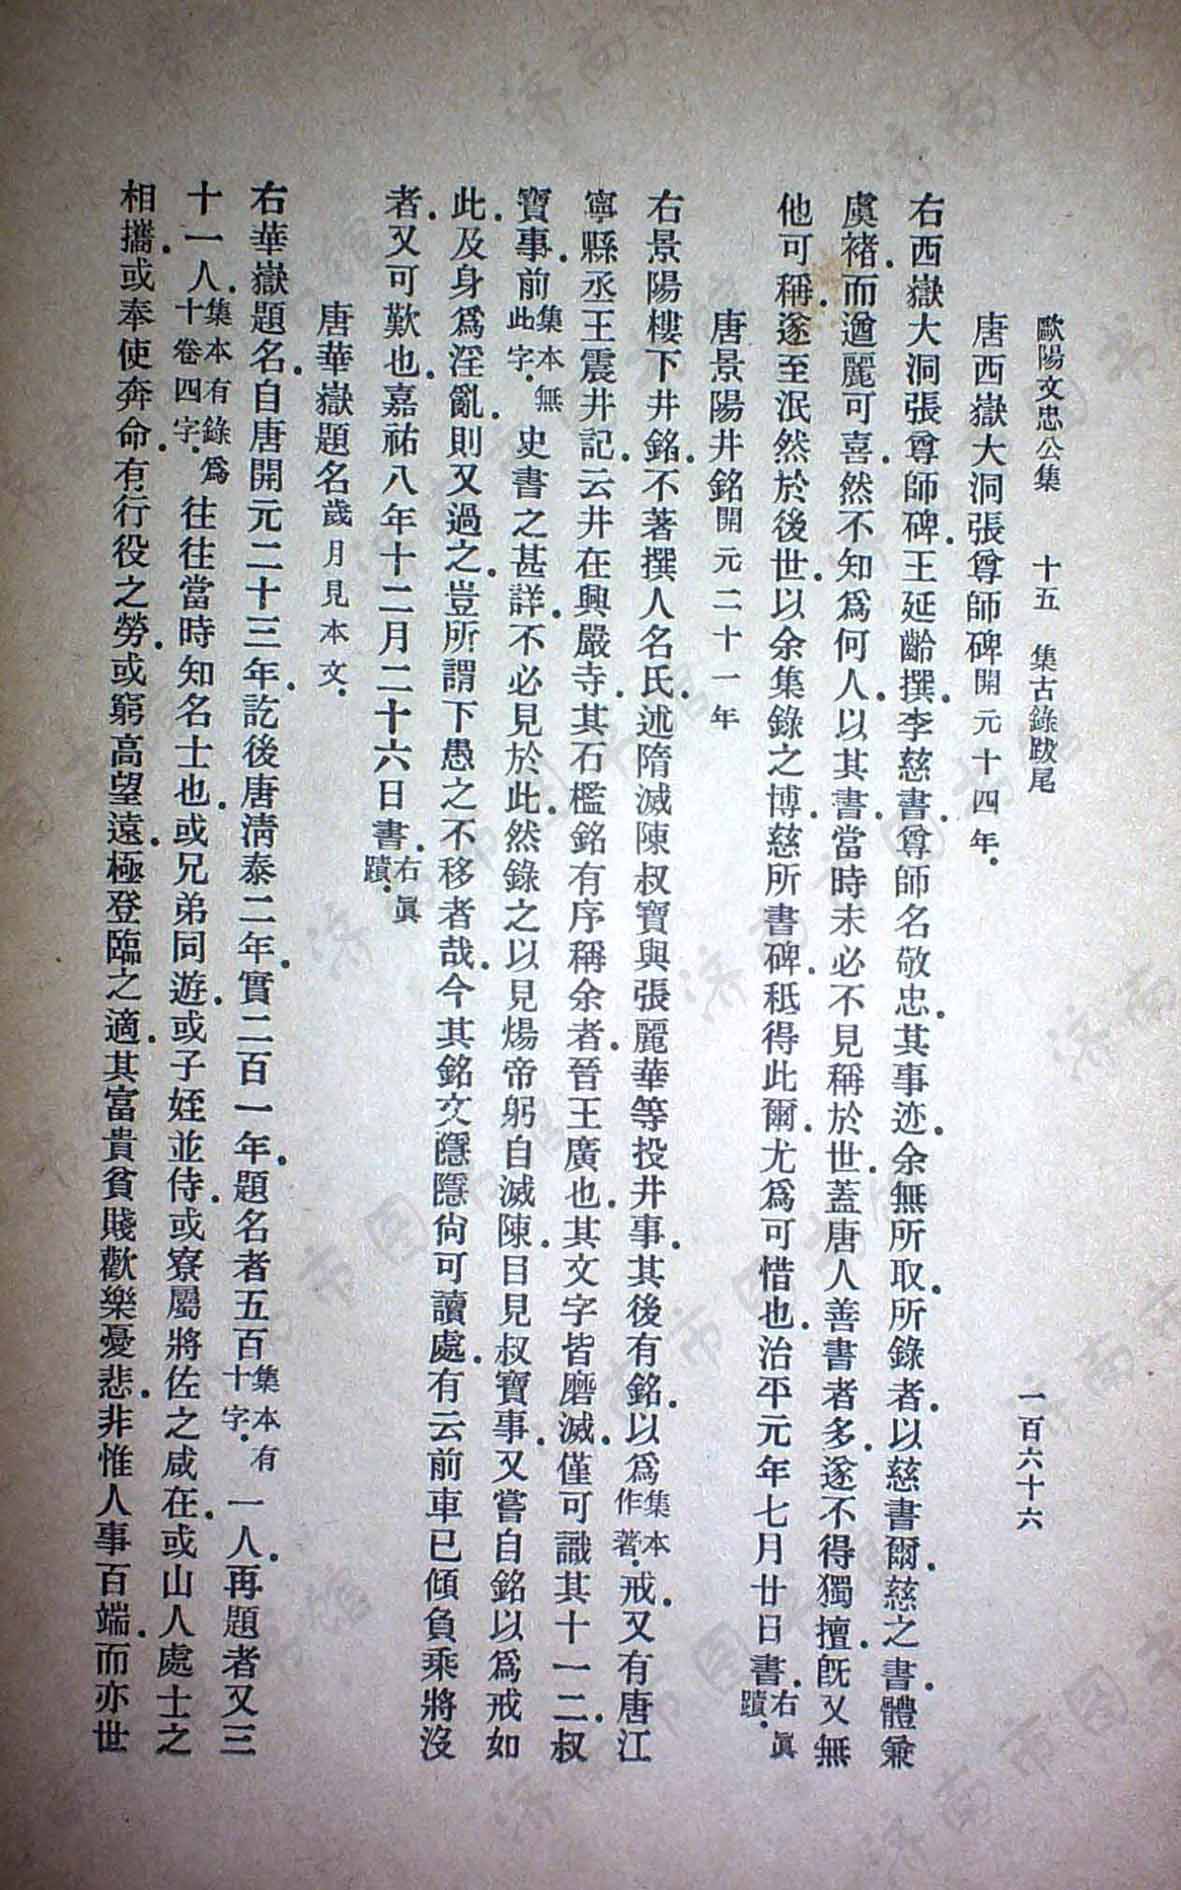 歐陽文忠公集 十五 集古錄跋尾 一百六十六
唐西嶽大洞張尊師碑開元十四年.
右西嶽大洞張尊師碑.王延齡撰.李慈書.尊師名敬忠.其事迹.余無所取.所錄者.以慈書爾.慈之書.體兼
虞褚.而遒麗可喜.然不知爲何人.以其書.當時未必不見稱於世.蓋唐人善書者多.遂不得獨擅.旣又無
他可稱.遂至泯然於後世.以余集錄之博.慈所書碑.秪得此爾.尤爲可惜也.治平元年七月廿日書.右眞蹟.
唐景陽井銘開元二十一年
右景陽樓下井銘.不著撰人名氏.述隋滅陳叔寶與張麗華等投井事.其後有銘.以爲集本作著.戒.又有唐江
寧縣丞王震井記.云井在興嚴寺.其石檻銘有序稱余者.晉王廣也.其文字皆磨滅.僅可識其十一二.叔
寶事.前集本無此字.史書之甚詳.不必見於此.然錄之以見煬帝躬自滅陳.目見叔寶事.又嘗自銘以爲戒如
此.及身爲淫亂.則又過之.豈所謂下愚之不移者哉.今其銘文隱隱尙可讀處.有云前車已傾負乘將沒
者.又可歎也.嘉祐八年十二月二十六日書.右眞蹟.
唐華嶽題名歲月見本文.
右華嶽題名.自唐開元二十三年.訖後唐淸泰二年.實二百一年.題名者五百集本有十字.一人.再題者又三
十一人.集本有錄爲十卷四字.往往當時知名士也.或兄弟同遊.或子姪並侍.或寮屬將佐之咸在.或山人處士之
相攜.或奉使奔命.有行役之勞.或窮高望遠.極登臨之適.其富貴貧賤歡樂憂悲.非惟人事百端.而亦世